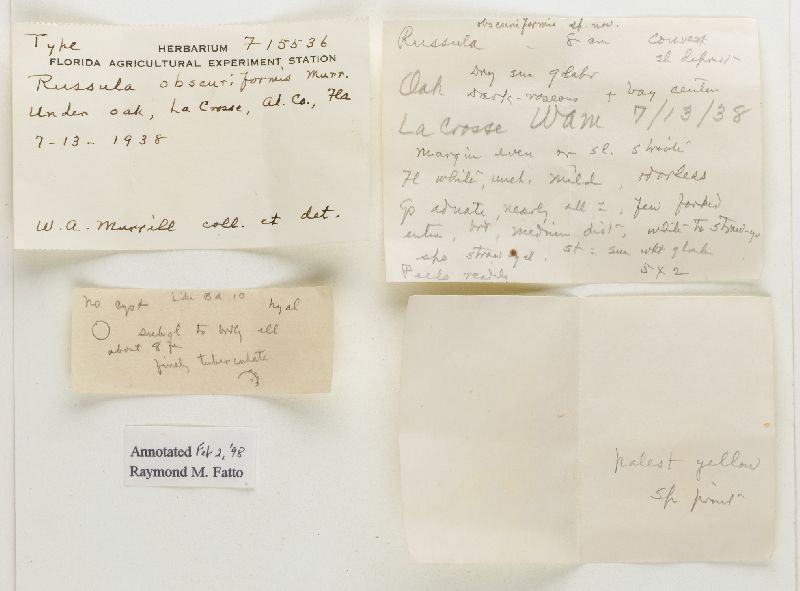 Type HERBARIUM F15536
FLORIDA AGRICULTURAL EXPERIMENT STATION
Russula obscuriformis Murr.
Under oak, La Crosse, Al. Co., Fla
7-13-1938
W. A. Murrill coll. et det.
obscuriformis sp. nov.
Russula 8 cm convex
sl. depress
Oak Dry sm glabr
dark-roseous + bay center
La Crosse WAM 7/13/38
Margin even or sl. striate
Fl white, unch. mild, odorless
adnate, nearly all =, few forked
medium dist, white to straw-yel
sps straw yel. st = sm wht glab
Peels readily 5 x 2
No cyst Like Bd 10 hyal
subgl to brdly ell
about 8 µ
finely tuberculate
Annotated Feb 2, '98
Raymond M. Fatto
palest yellow
sp print